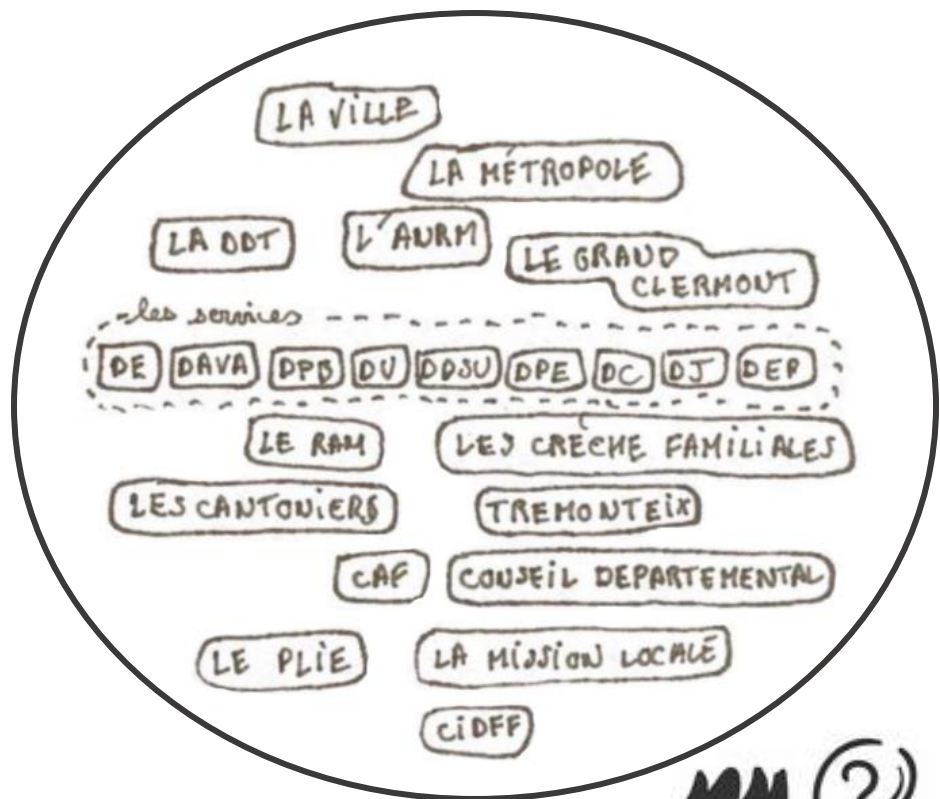 LA VILLE
LA MÉTROPOLE
LA DDT
L'AURM
LE GRAND
CLERMONT
les services
DE DAVA DPB DV DDSU DPE DC DJ DEP
LE RAM
LES CRÈCHE FAMILIALES
LES CANTONIERS
TREMONTEIX
CAF
CONSEIL DEPARTEMENTAL
LE PLIE
LA MISSION LOCALE
CIDFF
?